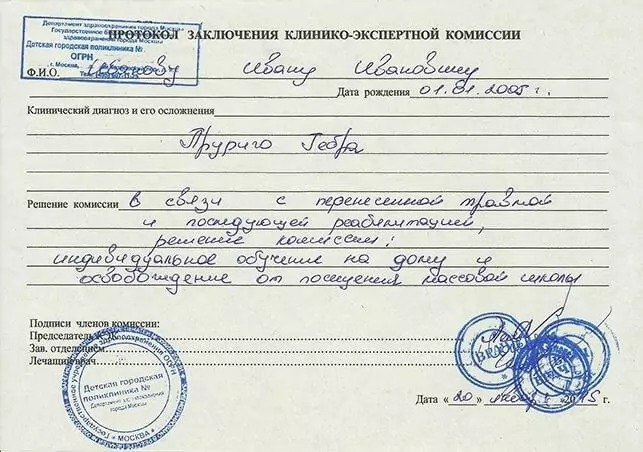 Департамент здравоохранения города Москвы
Детская городская поликлиника №
ОГРН
г. Москва,
ПРОТОКОЛ ЗАКЛЮЧЕНИЯ КЛИНИКО-ЭКСПЕРТНОЙ КОМИССИИ
Ф.И.О. Иванову Ивану Ивановичу
Дата рождения 01.01.2005 г.
Клинический диагноз и его осложнения
Пруриго Гебра
Решение комиссии в связи с перенесенной травмой
и последующей реабилитацией,
решение комиссии:
индивидуальное обучение на дому и
освобождение от посещения массовой школы
Подписи членов комиссии:
Председатель КЭК
Зав. отделением
Лечащий врач
Детская городская
поликлиника №
Департамент здравоохранения
города Москвы
* МОСКВА *
Дата «20»